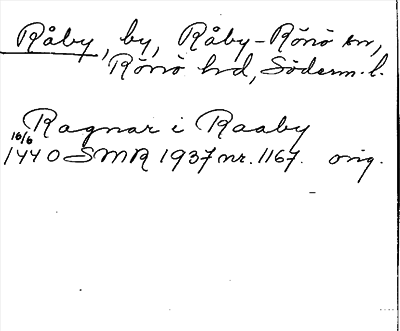 Råby, by, Råby-Rönö sn,
Rönö hd, Söderm. l.
Ragnar i Raaby
16/6
1440 SMR 1937 nr. 1167. orig.